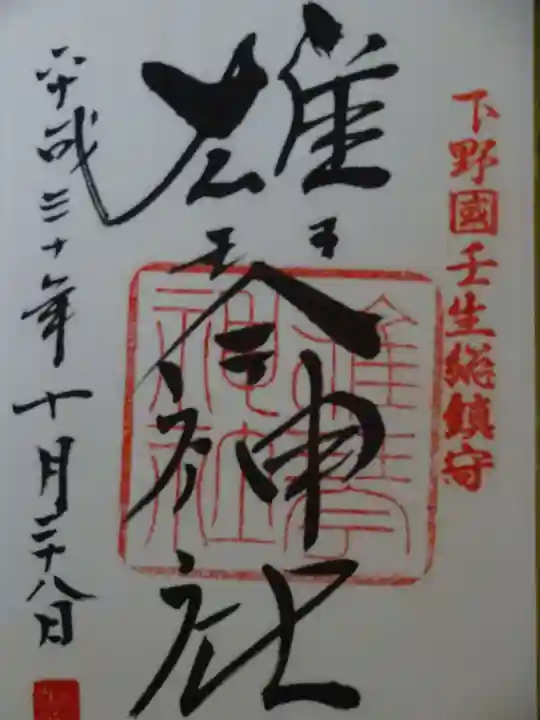 下野國壬生総鎮守
雄琴神社
雄琴神社
平成三十年十月二十八日